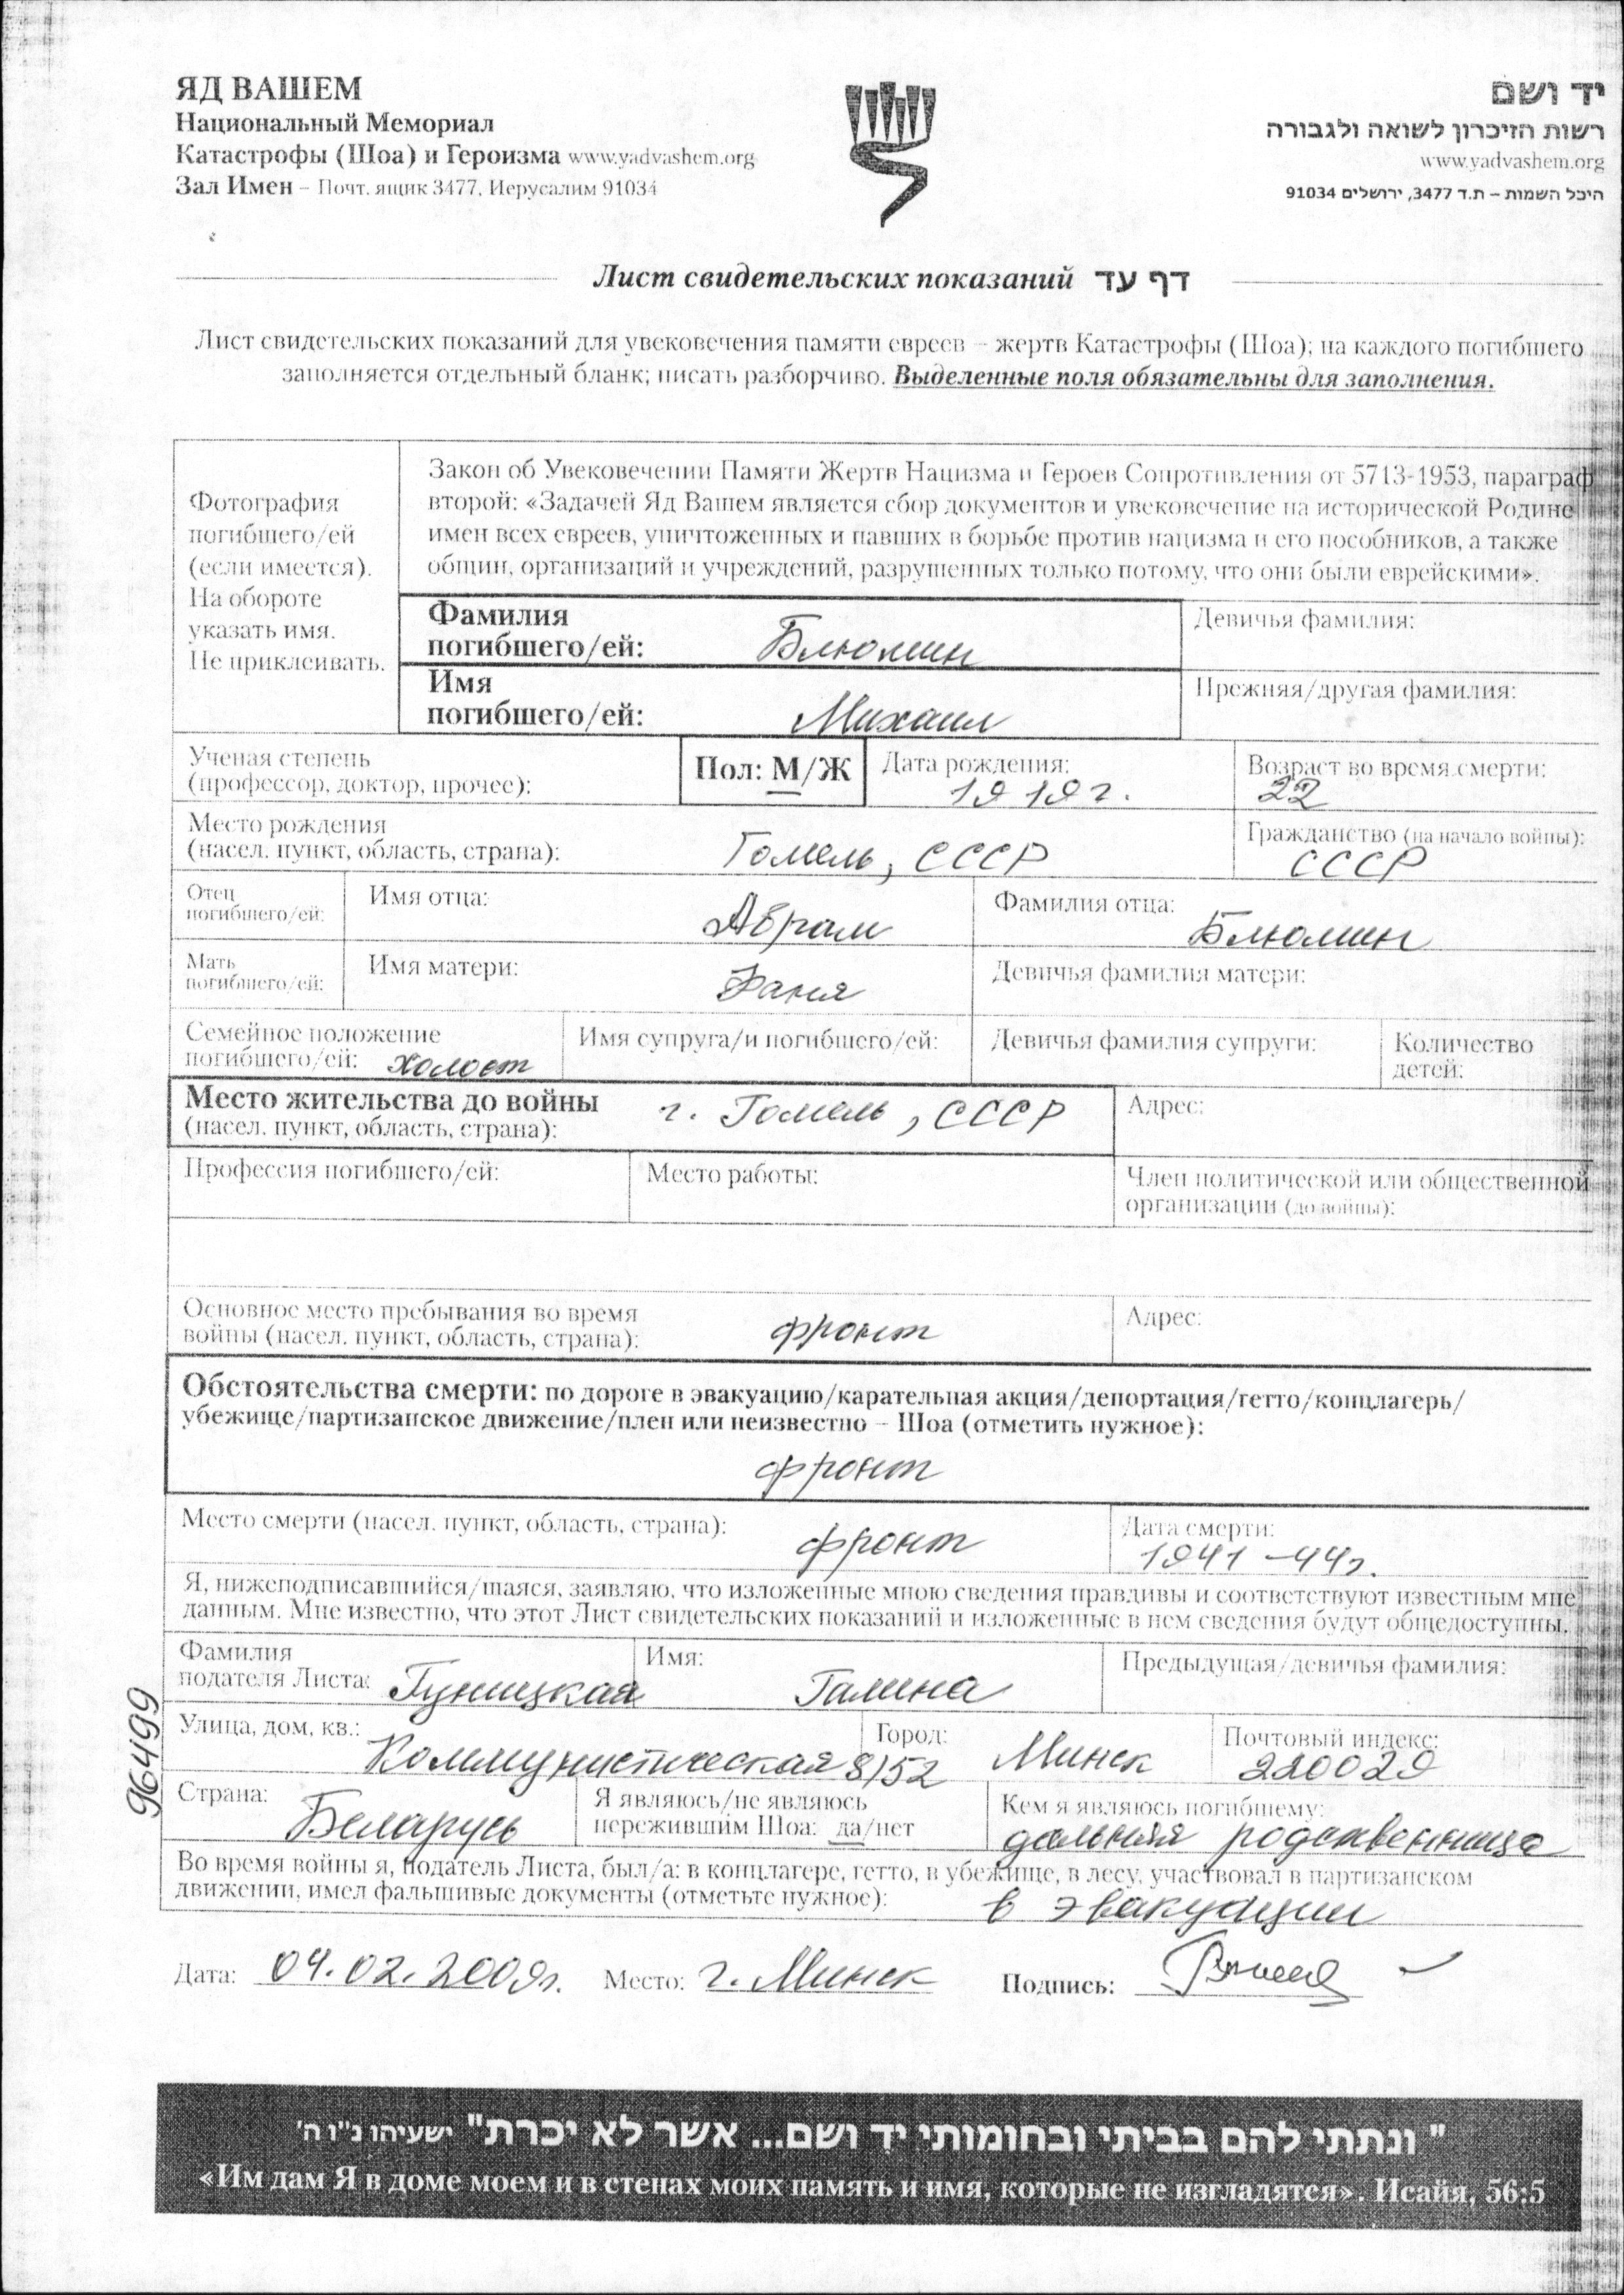 ЯД ВАШЕМ
Национальный Мемориал
Катастрофы (Шоа) и Героизма www.yadvashem.org
Зал Имен – Почт. ящик 3477, Иерусалим 91034
יד ושם
רשות הזיכרון לשואה ולגבורה
www.yadvashem.org
היכל השמות – ת.ד 3477, ירושלים 91034
Лист свидетельских показаний דף עד
Лист свидетельских показаний для увековечения памяти евреев – жертв Катастрофы (Шоа); на каждого погибшего
заполняется отдельный бланк; писать разборчиво. Выделенные поля обязательны для заполнения.
Фотография
погибшего/ей
(если имеется).
На обороте
указать имя.
Не приклеивать.
Закон об Увековечении Памяти Жертв Нацизма и Героев Сопротивления от 5713-1953, параграф
второй: «Задачей Яд Вашем является сбор документов и увековечение на исторической Родине
имен всех евреев, уничтоженных и павших в борьбе против нацизма и его пособников, а также
общин, организаций и учреждений, разрушенных только потому, что они были еврейскими».
Фамилия
погибшего/ей: Блюмин
Девичья фамилия:
Имя
погибшего/ей: Михаил
Прежняя/другая фамилия:
Ученая степень
(профессор, доктор, прочее):
Пол: М/Ж
Дата рождения:
1919г.
Возраст во время смерти:
22
Место рождения
(насел. пункт, область, страна): Гомель, СССР
Гражданство (на начало войны):
СССР
Отец
погибшего/ей:
Имя отца: Абрам
Фамилия отца: Блюмин
Мать
погибшего/ей:
Имя матери: Фаня
Девичья фамилия матери:
Семейное положение
погибшего/ей: холост
Имя супруга/и погибшего/ей:
Девичья фамилия супруги:
Количество
детей:
Место жительства до войны
(насел. пункт, область, страна): г. Гомель, СССР
Адрес:
Профессия погибшего/ей:
Место работы:
Член политической или общественной
организации (до войны):
Основное место пребывания во время
войны (насел. пункт, область, страна): фронт
Адрес:
Обстоятельства смерти: по дороге в эвакуацию/карательная акция/депортация/гетто/концлагерь/
убежище/партизанское движение/плен или неизвестно – Шоа (отметить нужное):
фронт
Место смерти (насел. пункт, область, страна): фронт
Дата смерти:
1941-44г.
Я, нижеподписавшийся/шаяся, заявляю, что изложенные мною сведения правдивы и соответствуют известным мне
данным. Мне известно, что этот Лист свидетельских показаний и изложенные в нем сведения будут общедоступны.
Фамилия
подателя Листа: Гуницкая
Имя: Галина
Предыдущая/девичья фамилия:
Улица, дом, кв.: Коммунистическая 8/52
Город: Минск
Почтовый индекс:
220029
Страна: Беларусь
Я являюсь/не являюсь
пережившим Шоа: да/нет
Кем я являюсь погибшему:
дальняя родственница
Во время войны я, податель Листа, был/а: в концлагере, гетто, в убежище, в лесу, участвовал в партизанском
движении, имел фальшивые документы (отметьте нужное): в эвакуации
Дата: 04.02.2009г. Место: г. Минск Подпись:
96499
" ונתתי להם בביתי ובחומותי יד ושם... אשר לא יכרת" ישעיהו נ"ו ה'
«Им дам Я в доме моем и в стенах моих память и имя, которые не изгладятся». Исайя, 56:5